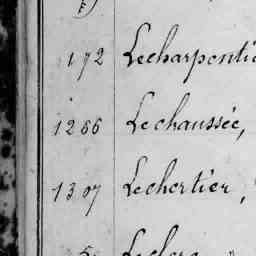 172 Lecharpentie
1286 Lechaussée,
1307 Lechertier,
Leclerc "